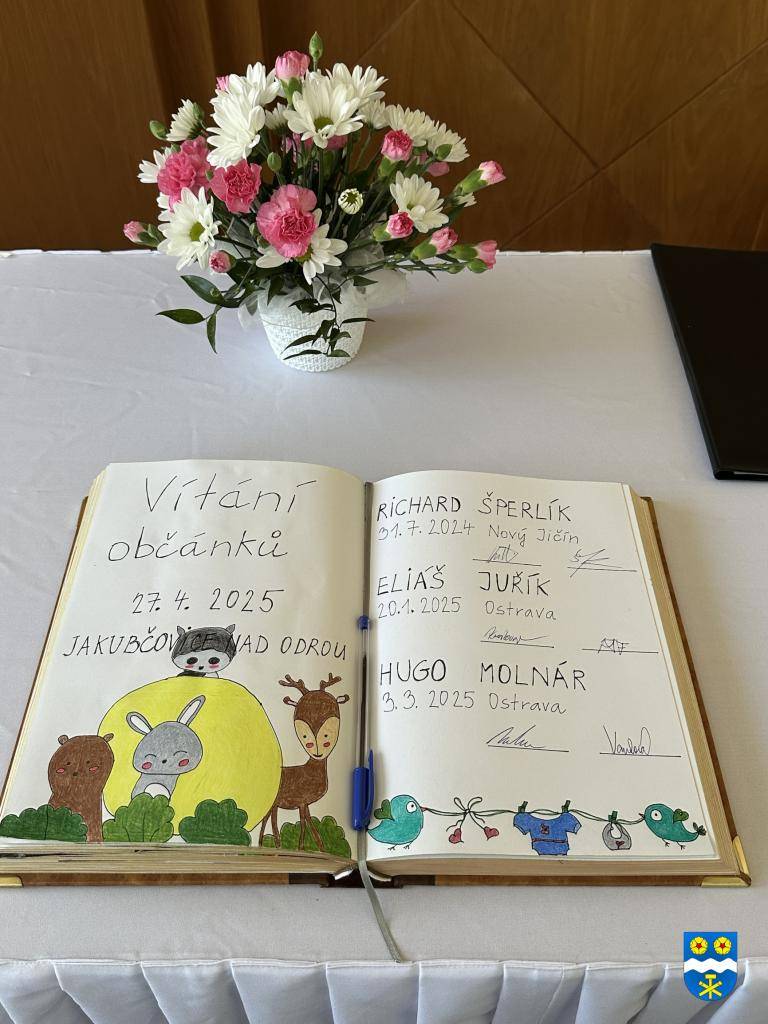 Vítání
občánků
27. 4. 2025
JAKUBČOVICE NAD ODROU
RICHARD ŠPERLÍK
31. 7. 2024 Nový Jičín
ELIÁŠ JUŘÍK
20.1. 2025 Ostrava
HUGO MOLNÁR
3. 3. 2025 Ostrava